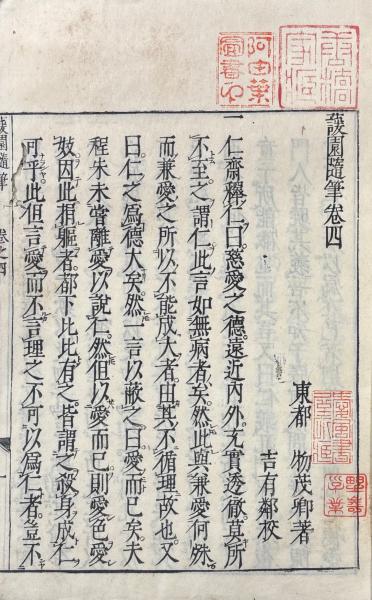 蘐園隨筆卷四
東都 物茂卿著
吉有鄰校
一仁齋釋仁曰慈愛之德遠近內外充實透徹莫所
不至之謂仁此言如無病者矣然此與兼愛何殊
而兼愛之所以不能成大者由其不循理故也又
曰仁之爲德大矣然一言以蔽之曰愛而已矣夫
程朱未嘗離愛以說仁然但以愛而已則愛色愛
妓因此相軀者都下比比有之皆謂之殺身成仁
可乎此但言愛而不言理之不可以爲仁者豈不
蘐園隨筆 卷之四 一
阿由葉
圖書印